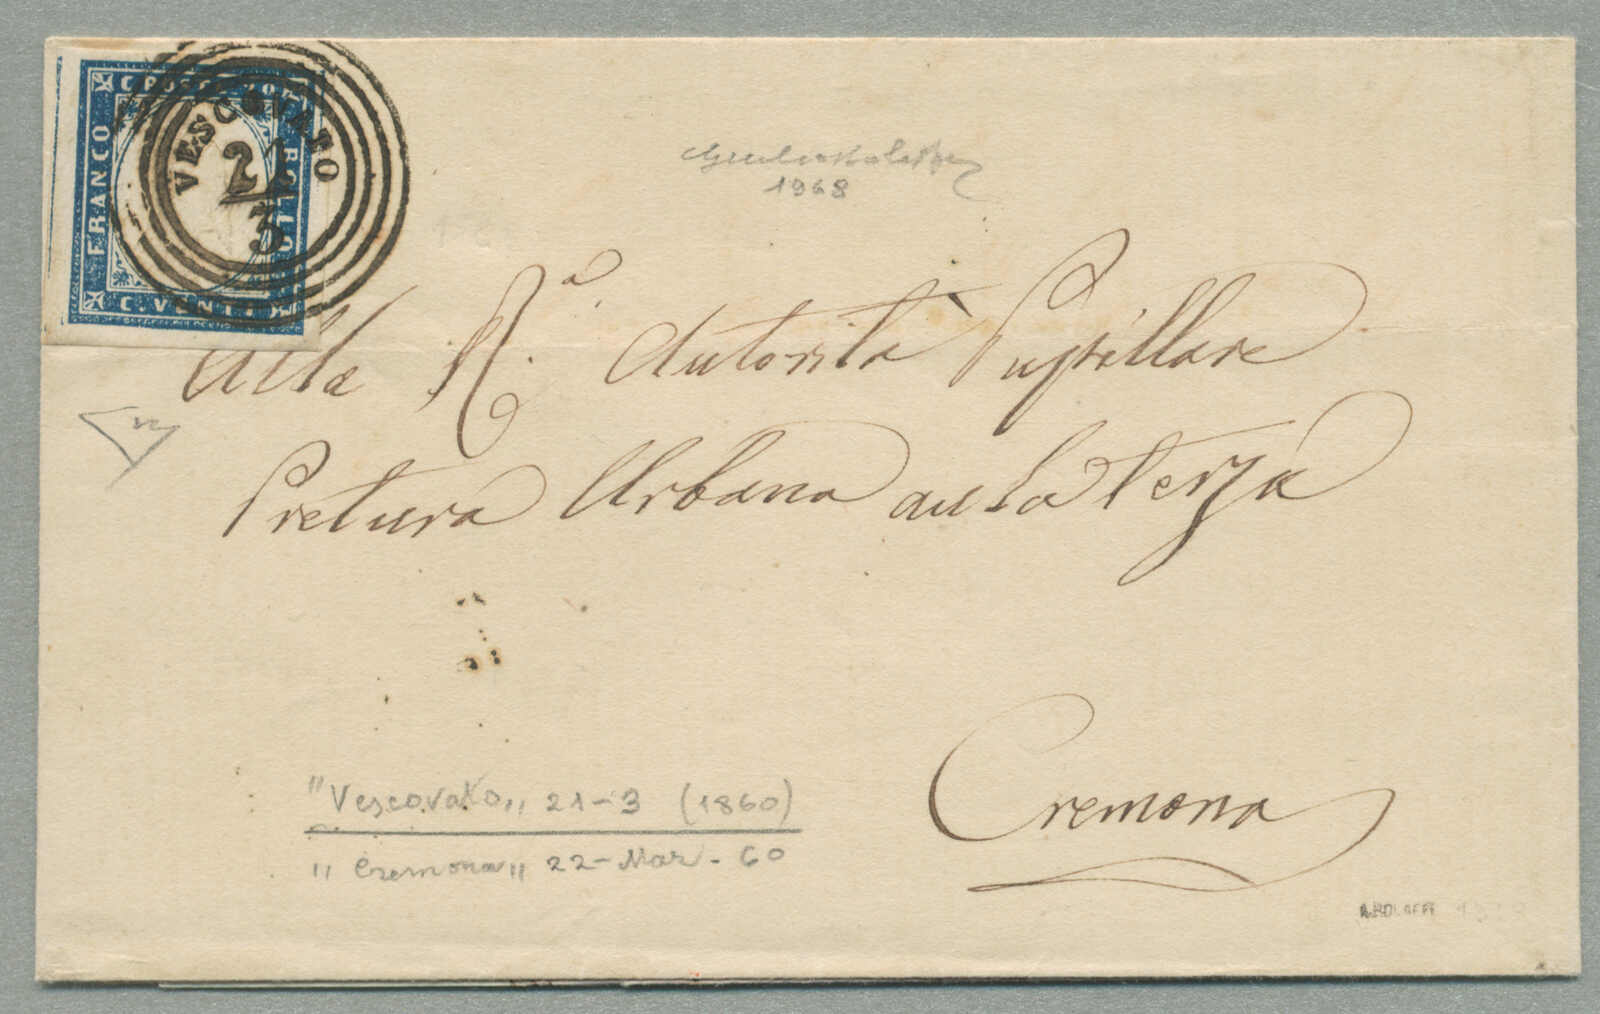 C. POSTE 20
FRANCO
BOLLO
C. VENTI
VESCOVATO
21
3
1968
Alla R.a Autorità Pupillare
Pretura Urbana aula terza
Cremona
"Vescovato,, 21-3 (1860)
"Cremona,, 22-Mar-60
A. BOLAFFI